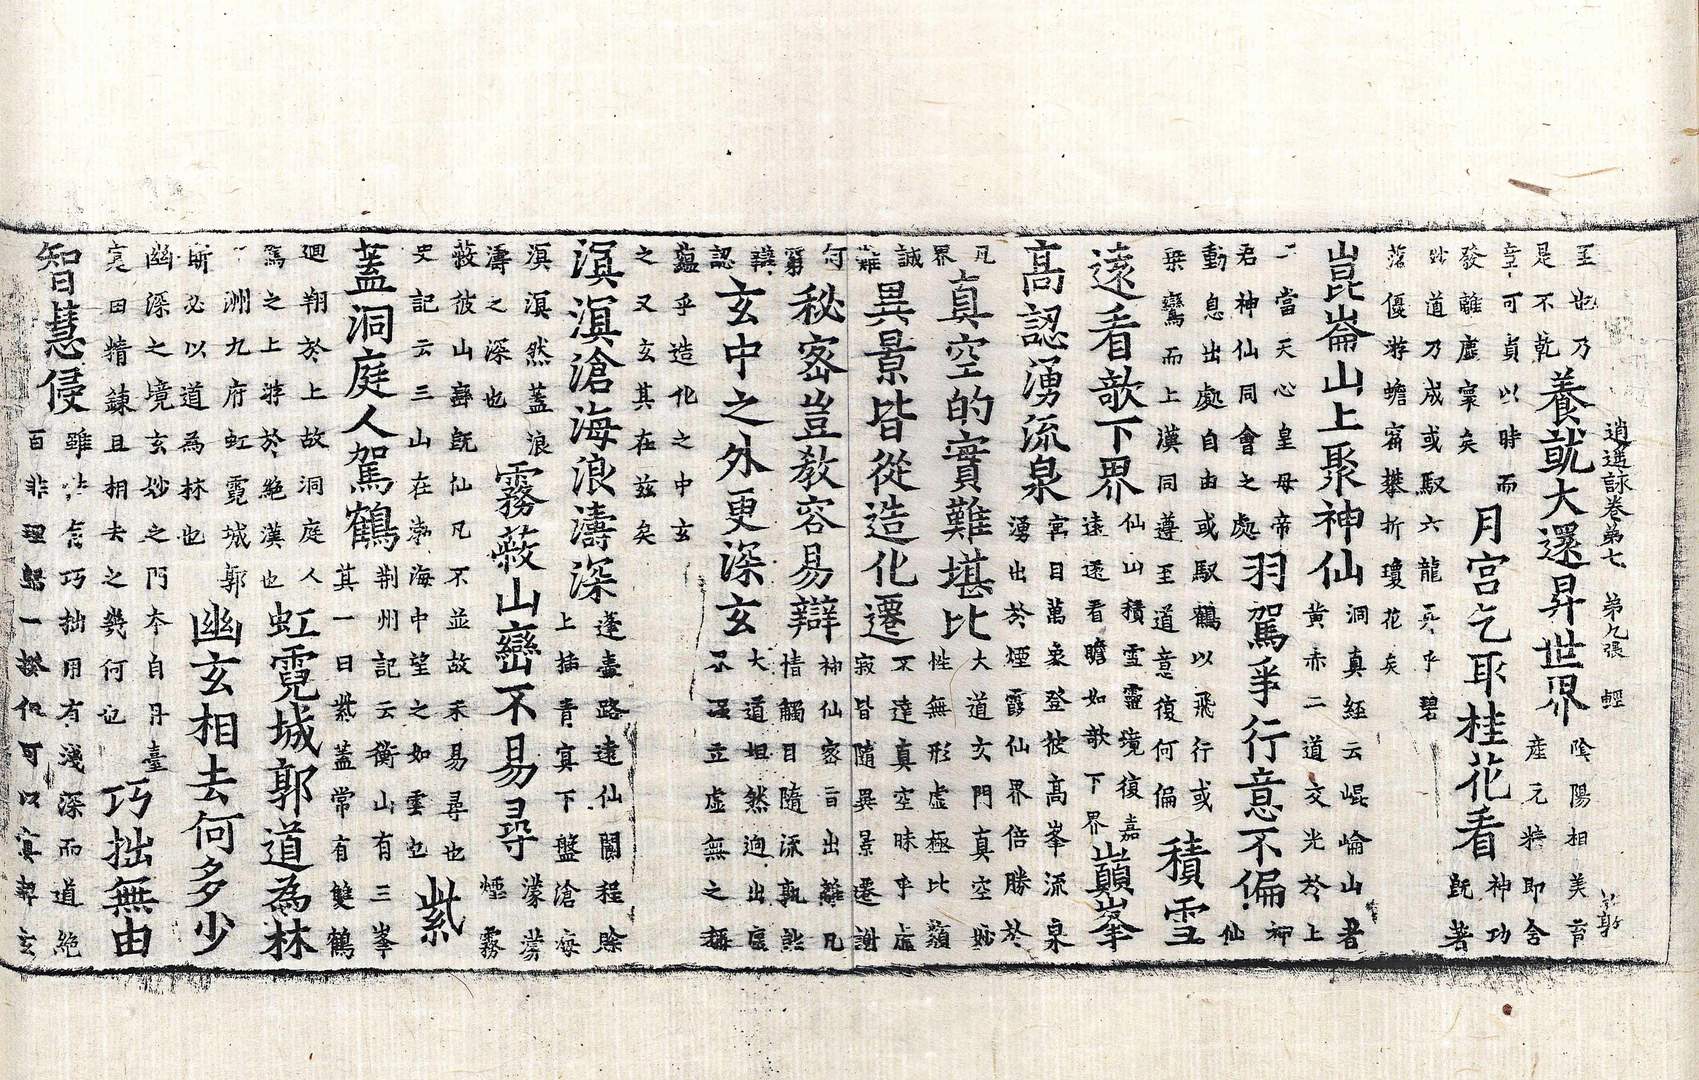 逍遙詠卷第七 第九張 輕
至也乃
是不乾
養就大還昇世界
陰陽相美育
產元精即含
章可貞以時而
發離虛寞矣
月宮乞取桂花看
神功
既著
妙道乃成或馭六龍升乎碧
落優游蟾窟攀折瓊花矣
崑崙山上聚神仙
洞真經云崐崘山者
黃赤二道交光於上
一當天心皇母帝
君神仙同會之處
羽駕爭行意不偏
神
仙
動息出處自由或馭鶴以飛行或
乘鸞而上漢同遵至道意復何偏
積雪
遠看欹下界
仙山積雪靈境復嘉
遠遠看瞻如欹下界
巔峯
高認湧流泉
宮目萬象登彼高峯流泉
湧出於煙霞仙界倍勝於
凡
界
真空的實難堪比
大道玄門真空妙
性無形虛極比類
誠
難
異景皆從造化遷
不達真空昧乎虛
寂皆隨異景遷謝
何
窮
秘密豈教容易辯
神仙密旨出離凡
情觸目隨流孰能
辯
認
玄中之外更深玄
大道坦然迥出虛
不混立虛無之稱
蘊乎造化之中玄
之又玄其在茲矣
溟溟滄海浪濤深
蓬壺路遠仙闕程賒
上插青冥下盤滄海
溟溟然蓋浪
濤之深也
霧蔽山巒不易尋
濛濛
煙霧
蔽彼山辭既仙凡不並故禾易尋也
史記云三山在渤海中望之如雲也
紫
蓋洞庭人駕鶴
荊州記云衡山有三峯
其一曰紫蓋常有雙鶴
迴翔於上故洞庭人
駕之上游於絕漢也
虹霓城郭道為林
洲九府虹霓城郭
斯必以道為林也
幽玄相去何多少
幽深之境玄妙之門本自丹臺
真因精鍊且相去之幾何也
巧拙無由
智慧侵
雖言巧拙用有淺深而道絕
百非理歸一揆何可以冥契玄